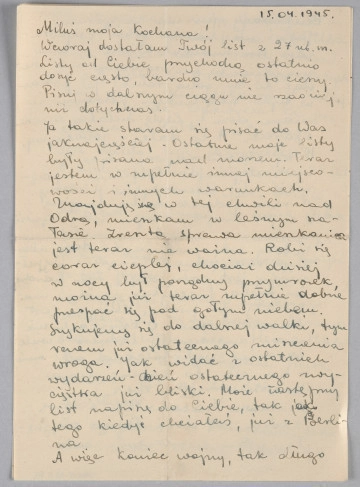 15.04.1945.
Miluś moja Kochana!
Wczoraj dostałam Twój list z 27 ub. m.
Listy od Ciebie przychodzą ostatnio
dosyć często, bardzo mnie to cieszy.
Pisuj w dalszym ciągu nie rzadziej
niż dotychczas.
Ja także staram się pisać do Was
jaknajczęściej. Ostatnie moje listy
były pisane nad morzem. Teraz
jestem w zupełnie innej miejsco-
wości i innych warunkach.
Znajduję się w tej chwili nad
Odrą, mieszkam w leśnym sza-
łasie. Zresztą sprawa mieszkania
jest teraz nie ważna. Robi się
coraz cieplej, chociaż dzisiaj
w nocy był porządny przymrozek
można już teraz zupełnie dobrze
przespać się pod gołym niebem.
Szykujemy się do dalszej walki, tym
razem już ostatecznego zniszczenia
wroga. Jak widać z ostatnich
wydarzeń - dzień ostatecznego zwy-
cięstwa już bliski. Może następny
list napiszę do Ciebie, tak jak
tego kiedyś chciałaś, już z Berli-
na
A więc koniec wojny, tak długo